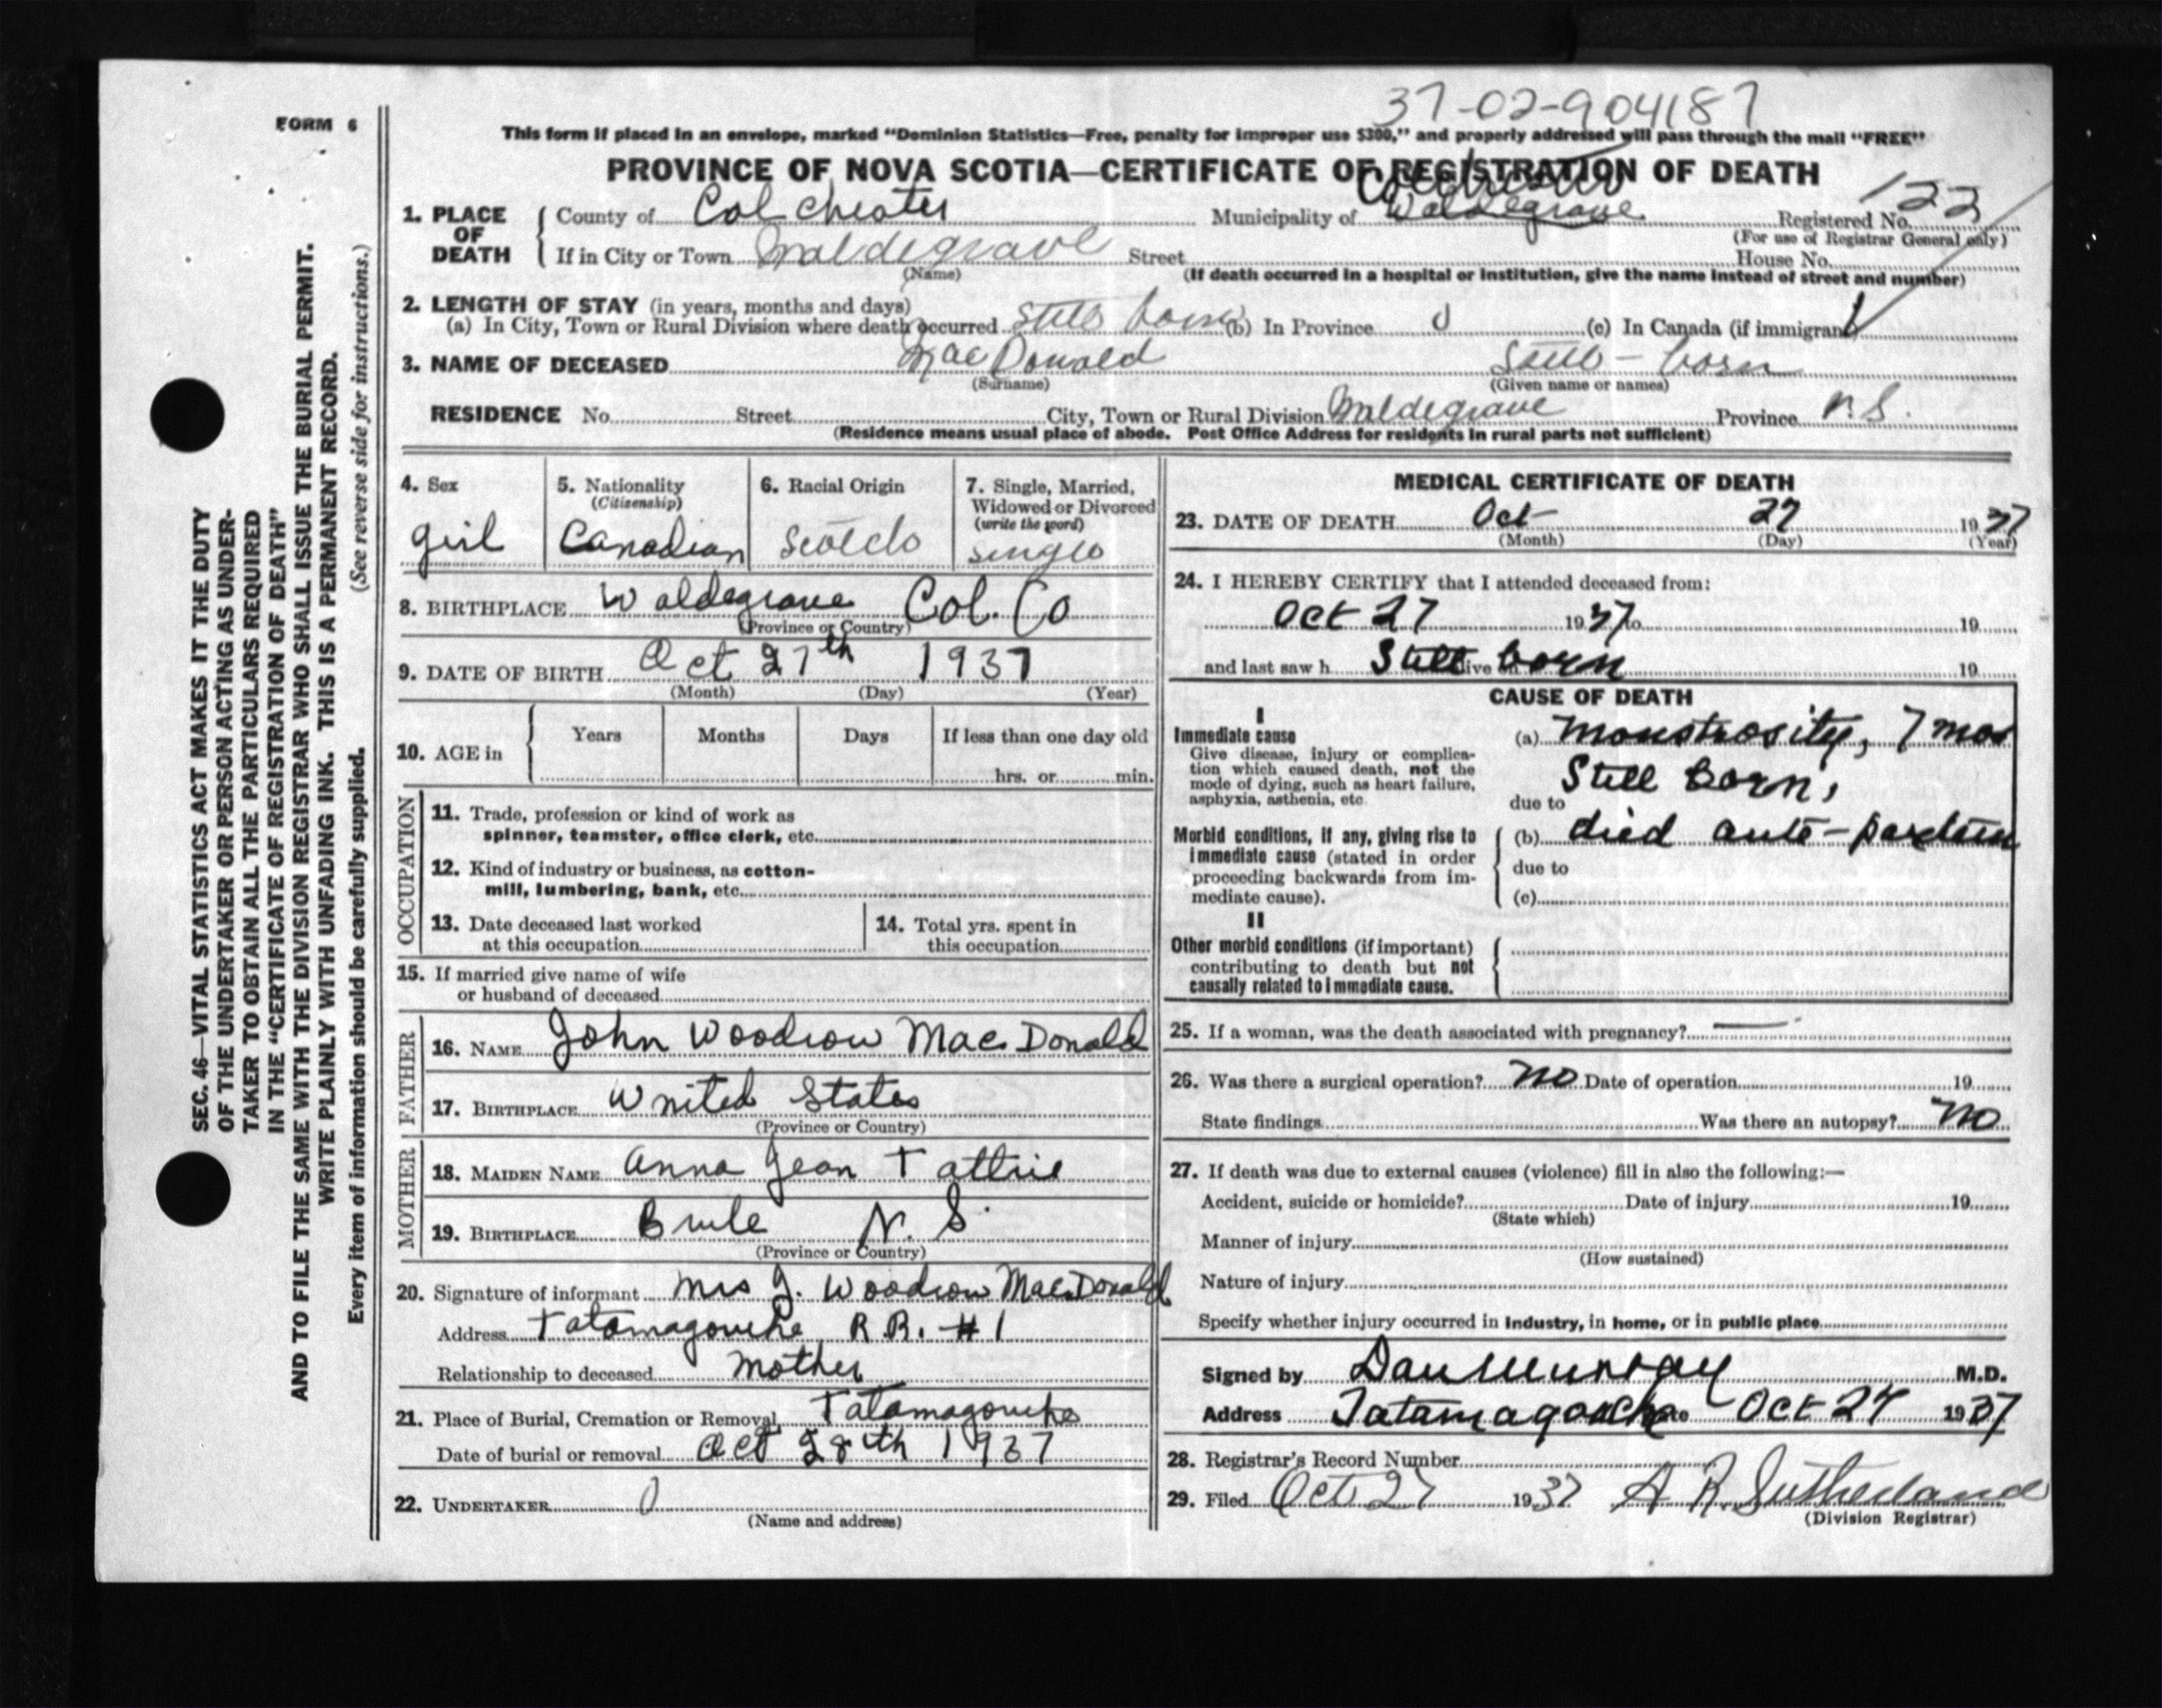 37-02-904187
FORM 6
This form if placed in an envelope, marked “Dominion Statistics—Free, penalty for improper use $300,” and properly addressed will pass through the mail “FREE”
PROVINCE OF NOVA SCOTIA—CERTIFICATE OF REGISTRATION OF DEATH
Colchester
1. PLACE OF DEATH County of Colchester Municipality of Waldegrave Registered No. 122
(For use of Registrar General only)
If in City or Town Waldegrave Street House No.
(Name) (If death occurred in a hospital or institution, give the name instead of street and number)
2. LENGTH OF STAY (in years, months and days)
(a) In City, Town or Rural Division where death occurred Still born (b) In Province (c) In Canada (if immigrant)
3. NAME OF DECEASED MacDonald Still-born
(Surname) (Given name or names)
RESIDENCE No. Street City, Town or Rural Division Waldegrave Province N.S.
(Residence means usual place of abode. Post Office Address for residents in rural parts not sufficient)
4. Sex 5. Nationality 6. Racial Origin 7. Single, Married,
(Citizenship) Widowed or Divorced
(write the word)
girl Canadian Scotch single
8. BIRTHPLACE Waldegrave Col. Co
(Province or Country)
9. DATE OF BIRTH Oct 27th 1937
(Month) (Day) (Year)
10. AGE in Years Months Days If less than one day old
hrs. or min.
OCCUPATION
11. Trade, profession or kind of work as
spinner, teamster, office clerk, etc.
12. Kind of industry or business, as cotton-
mill, lumbering, bank, etc.
13. Date deceased last worked 14. Total yrs. spent in
at this occupation this occupation
15. If married give name of wife
or husband of deceased
FATHER
16. NAME John Woodrow MacDonald
17. BIRTHPLACE United States
(Province or Country)
MOTHER
18. MAIDEN NAME Anna Jean Tattrie
19. BIRTHPLACE Brule N. S.
(Province or Country)
20. Signature of informant Mrs J. Woodrow MacDonald
Address Tatamagouche R.R. #1
Relationship to deceased Mother
21. Place of Burial, Cremation or Removal Tatamagouche
Date of burial or removal Oct 28th 1937
22. UNDERTAKER
(Name and address)
MEDICAL CERTIFICATE OF DEATH
23. DATE OF DEATH Oct 27 1937
(Month) (Day) (Year)
24. I HEREBY CERTIFY that I attended deceased from:
Oct 27 1937 to 19
and last saw h Still alive on born 19
CAUSE OF DEATH
I
Immediate cause (a) Monstrosity, 7 mos
Give disease, injury or complica-
tion which caused death, not the
mode of dying, such as heart failure,
asphyxia, asthenia, etc.
Still Born,
due to
Morbid conditions, if any, giving rise to (b) died ante-partum
immediate cause (stated in order
proceeding backwards from im- due to
mediate cause). (c)
II
Other morbid conditions (if important)
contributing to death but not
causally related to immediate cause.
25. If a woman, was the death associated with pregnancy? —
26. Was there a surgical operation? No Date of operation 19
State findings Was there an autopsy? No
27. If death was due to external causes (violence) fill in also the following:—
Accident, suicide or homicide? Date of injury 19
(State which)
Manner of injury
(How sustained)
Nature of injury
Specify whether injury occurred in industry, in home, or in public place
Signed by Dan Murray M.D.
Address Tatamagouche Date Oct 27 1937
28. Registrar's Record Number
29. Filed Oct 27 1937 A R Sutherland
(Division Registrar)
SEC. 46—VITAL STATISTICS ACT MAKES IT THE DUTY
OF THE UNDERTAKER OR PERSON ACTING AS UNDER-
TAKER TO OBTAIN ALL THE PARTICULARS REQUIRED
IN THE “CERTIFICATE OF REGISTRATION OF DEATH”
AND TO FILE THE SAME WITH THE DIVISION REGISTRAR WHO SHALL ISSUE THE BURIAL PERMIT.
WRITE PLAINLY WITH UNFADING INK. THIS IS A PERMANENT RECORD.
Every item of information should be carefully supplied. (See reverse side for instructions.)